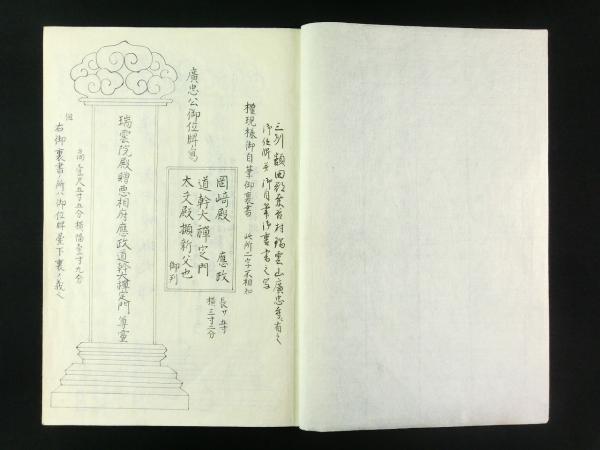 三州額田郡桑谷村瑞雲山廣忠寺ニ有之
御位牌並御自筆御裏書之写
權現様御自筆御裏書 此所二字不相知
廣忠公御位牌寫
岡﨑殿 應政
道幹大禪定門
太夫殿 新父也
御判
長サ五寸
横三寸二分
瑞雲院殿贈亜相府應政道幹大禪定門 尊霊
高壹尺五寸五分 横幅壹寸九分
但
右御裏書ノ所ハ御位牌臺下裏ノ義也